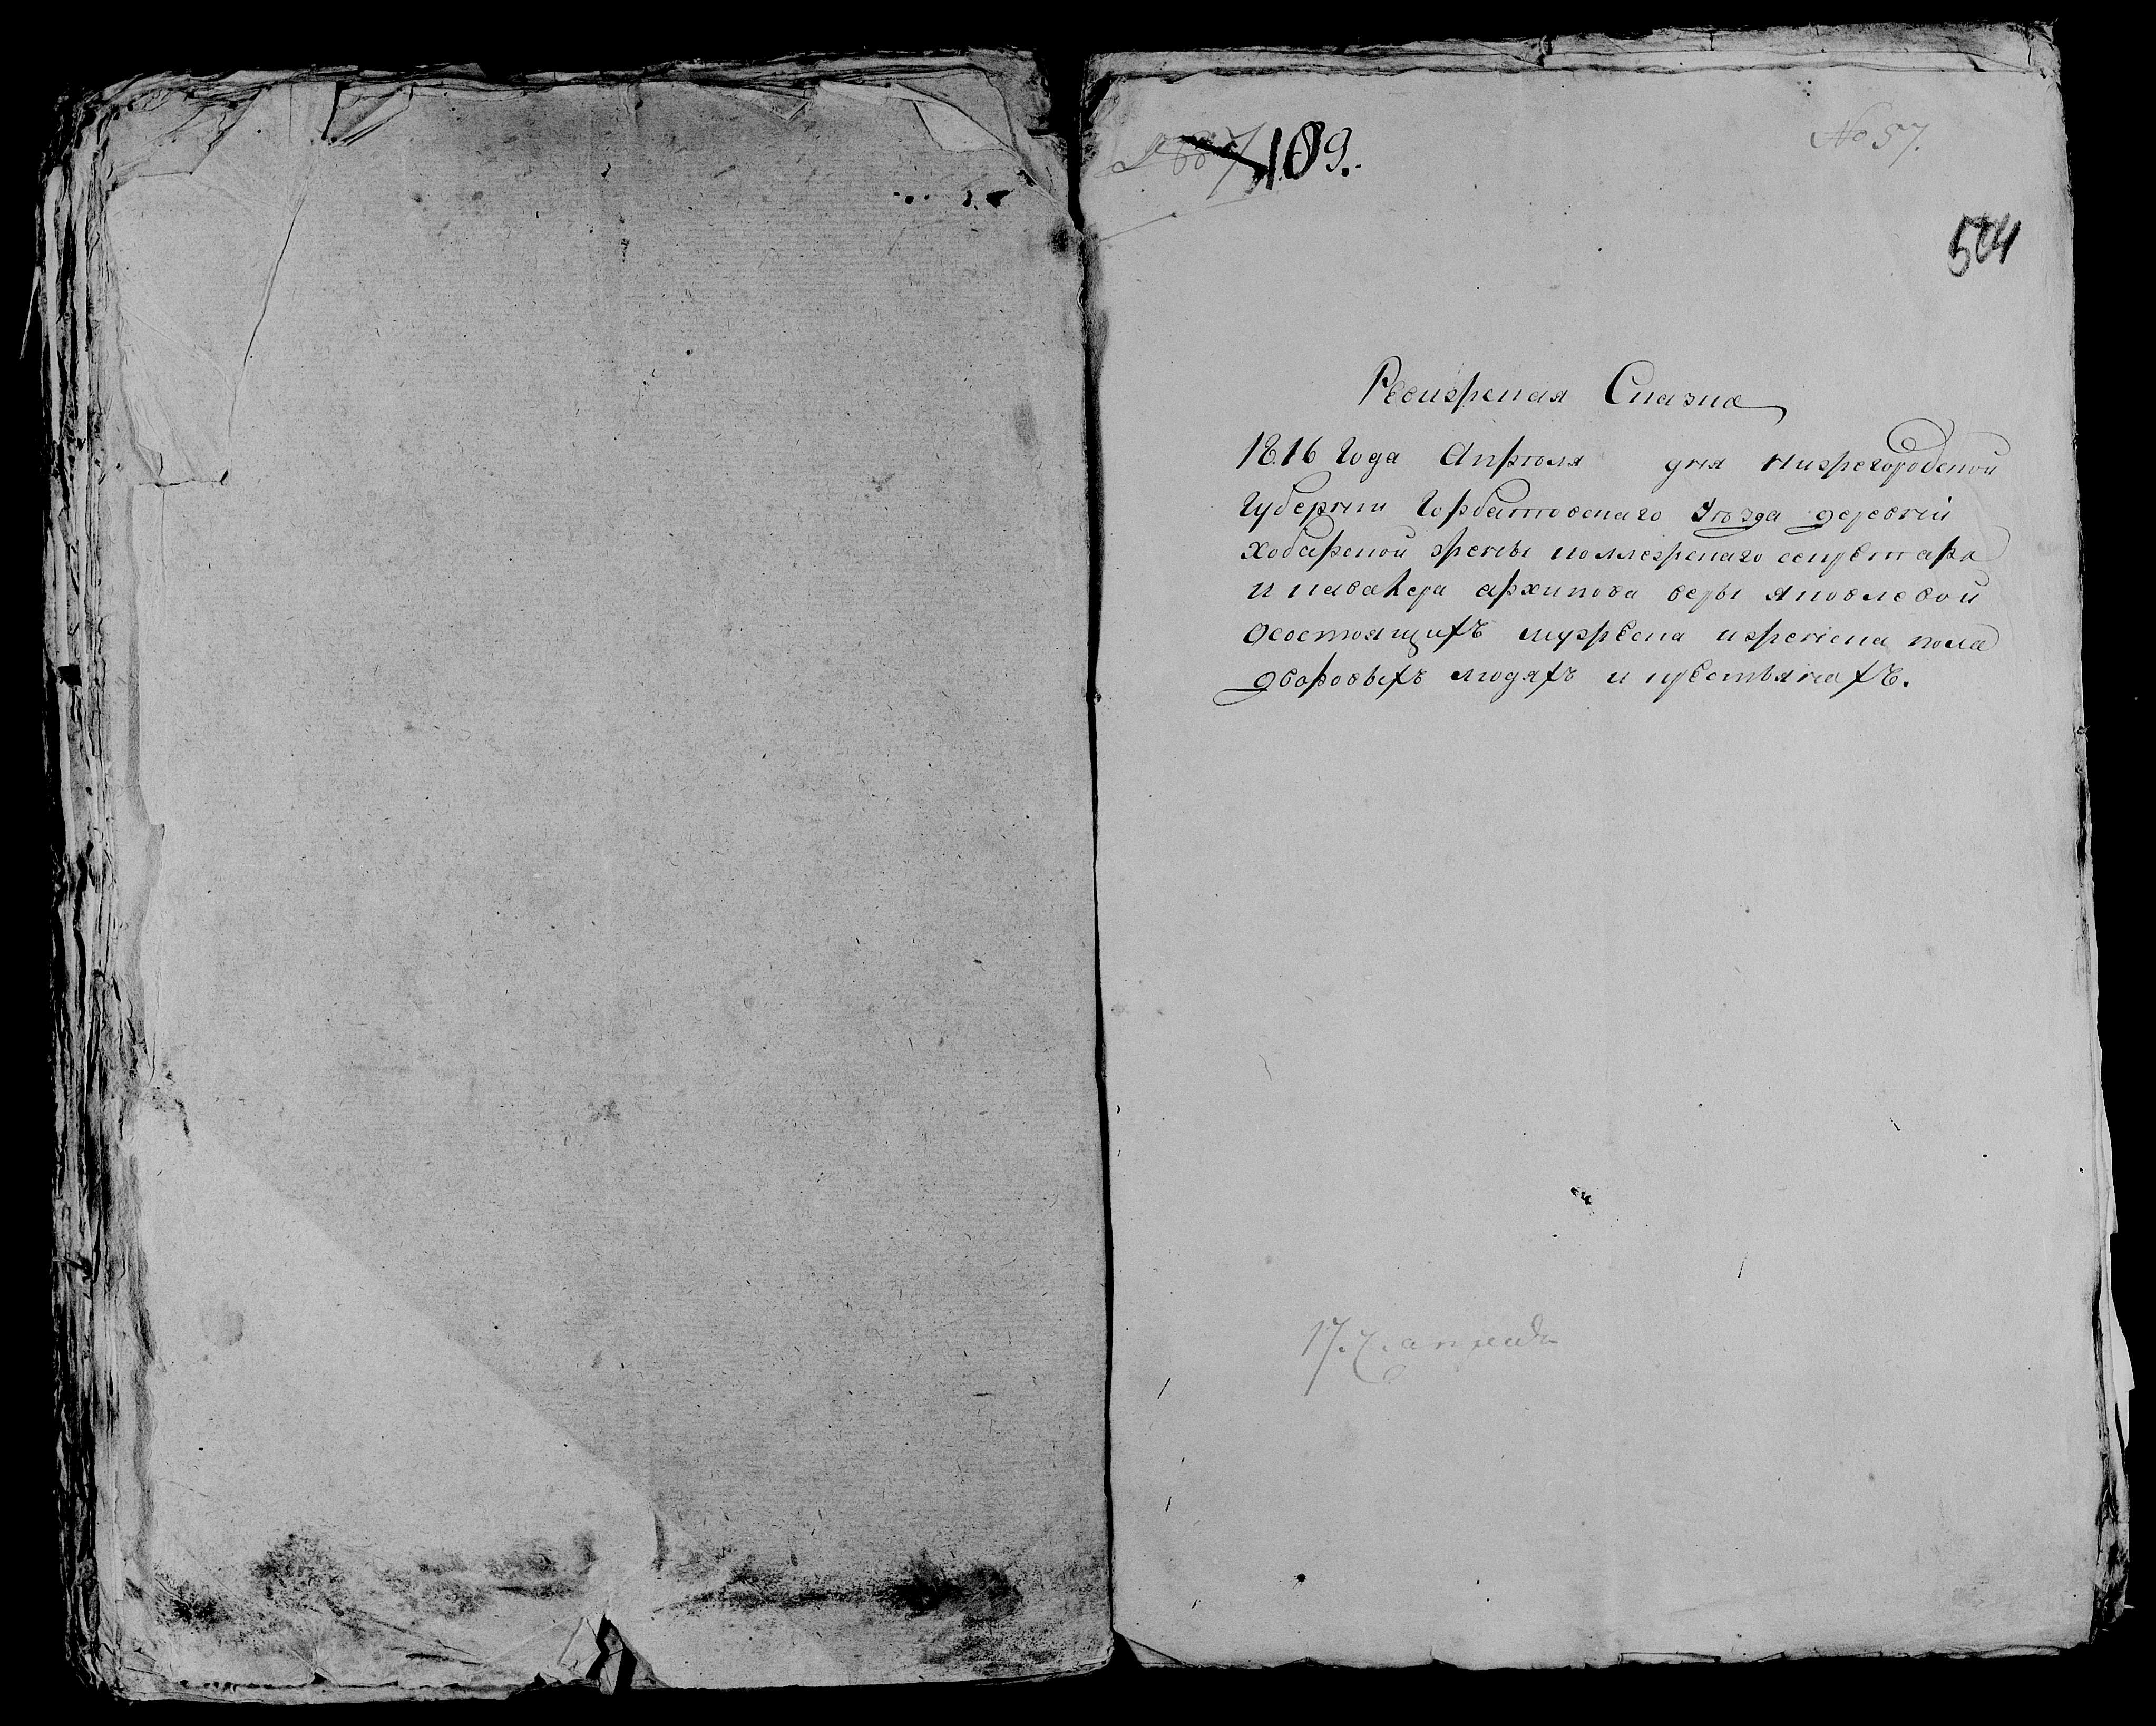 109.
No 57.
504
Ревизская Сказка
1816 Года Апреля дня Нижегородской
Губернии Горбатовскаго Уезда деревни
жены коллежскаго секретаря
и кавалера архипова веры яковлевой
осостоящихъ мужска иженска пола
дворовыхъ людяхъ и крестьянахъ.
17.